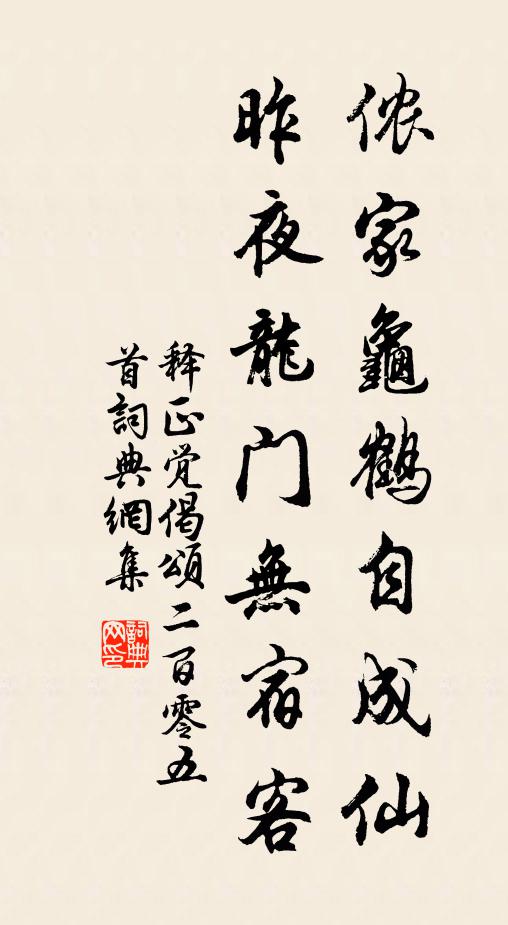 侬家龜鶴自成仙
昨夜龍门無宿客
释正觉偈頌二百零五
首詞典網集
詞典
网印